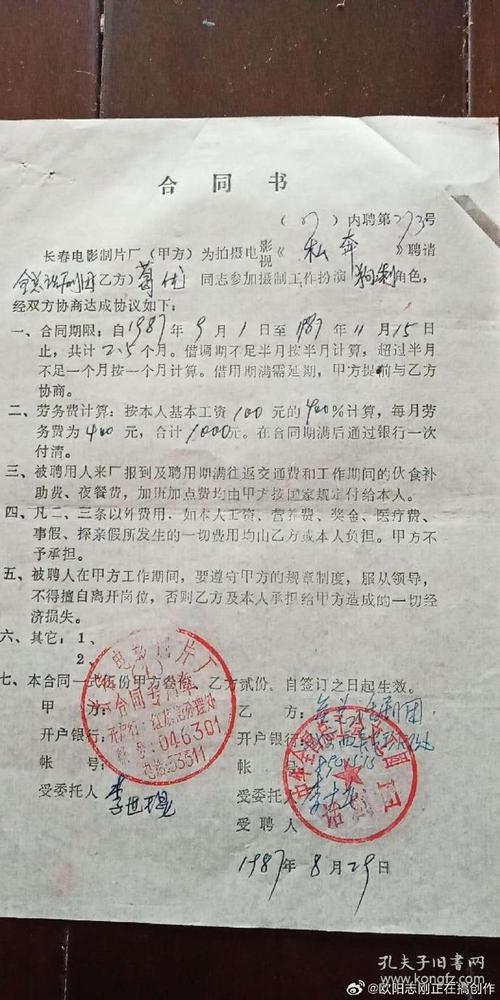 合同书
(87)内聘第273号
长春电影制片厂(甲方)为拍摄电影视《私奔》聘请
全总话剧团乙方)葛优同志参加摄制工作扮演 角色,
经双方协商达成协议如下:
一、合同期限:自1987年9月1日至1987年11月15日
止,共计2.5个月。借调期不足半月按半月计算,超过半月
不足一个月按一个月计算。借用期满需延期,甲方提前与乙方
协商。
二、劳务费计算:按本人基本工资100元的400%计算,每月劳
务费为400元,合计1000元。在合同期满后通过银行一次
付清。
三、被聘用人来厂报到及聘用期满往返交通费和工作期间的伙食补
助费、夜餐费,加班加点费均由甲方按国家规定付给本人。
四、凡二、三条以外费用,如本人工资、营养费、奖金、医疗费、
事假、探亲假所发生的一切费用均由乙方或本人负担。甲方不
予承担。
五、被聘人在甲方工作期间,要遵守甲方的规章制度,服从领导,
不得擅自离开岗位,否则乙方及本人承担给甲方造成的一切经
济损失。
六、其它:1、
2、
七、本合同一式伍份甲方叁份,乙方贰份,自签订之日起生效。
甲方:
乙方:全总话剧团
开户银行:
开户银行:
帐号:
帐号:
受委托人
受委托人
李世
受聘人
1987年8月29日
电影制片厂
合同专用章
开户行:红旗街办理处
帐号:046301
电话:53311
中华全国总工会文工团
话剧团
孔夫子旧书网
www.kongfz.com
@欧阳志刚正在搞创作